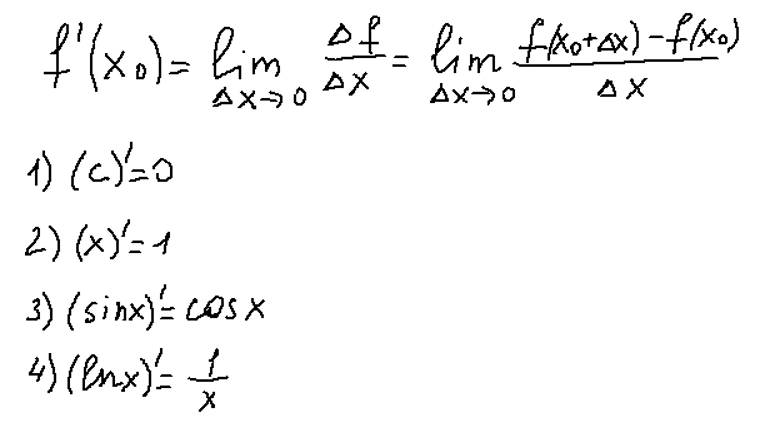 f'(x₀) = lim Δx→0 Δf/Δx = lim Δx→0 f(x₀+Δx)-f(x₀)/Δx
1) (c)'=0
2) (x)'=1
3) (sinx)'=cosx
4) (lnx)'=1/x